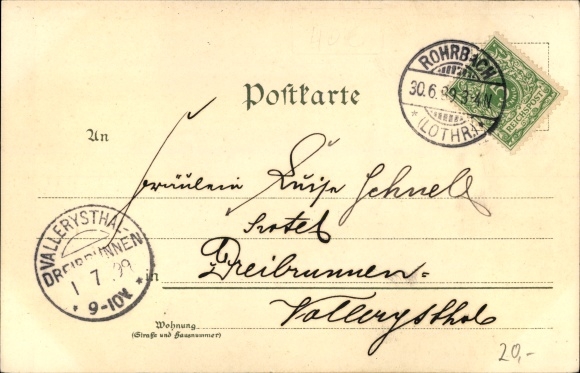 ROHRBACH
30.6.99 3-4N
* (LOTHR.) *
REICHSPOST
Postkarte
An
Fräulein Luise Schnell
Hotel
VALLERYSTHAL-
DREIBRUNNEN
1 7 99
* 9-10V *
in Dreibrunnen-
Vallerysthal
Wohnung
(Straße und Hausnummer)
20,-